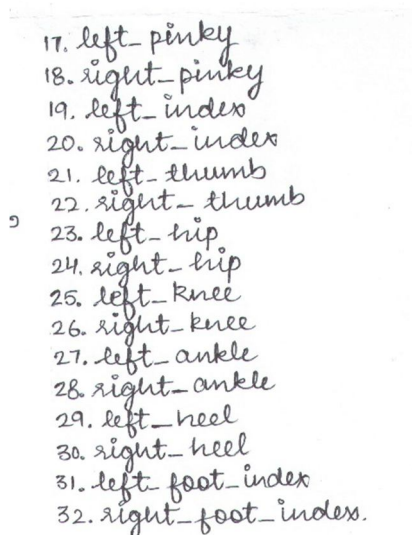 17. left_pinky
18. right_pinky
19. left_index
20. right_index
21. left_thumb
22. right_thumb
23. left_hip
24. right_hip
25. left_knee
26. right_knee
27. left_ankle
28. right_ankle
29. left_heel
30. right_heel
31. left_foot_index
32. right_foot_index.